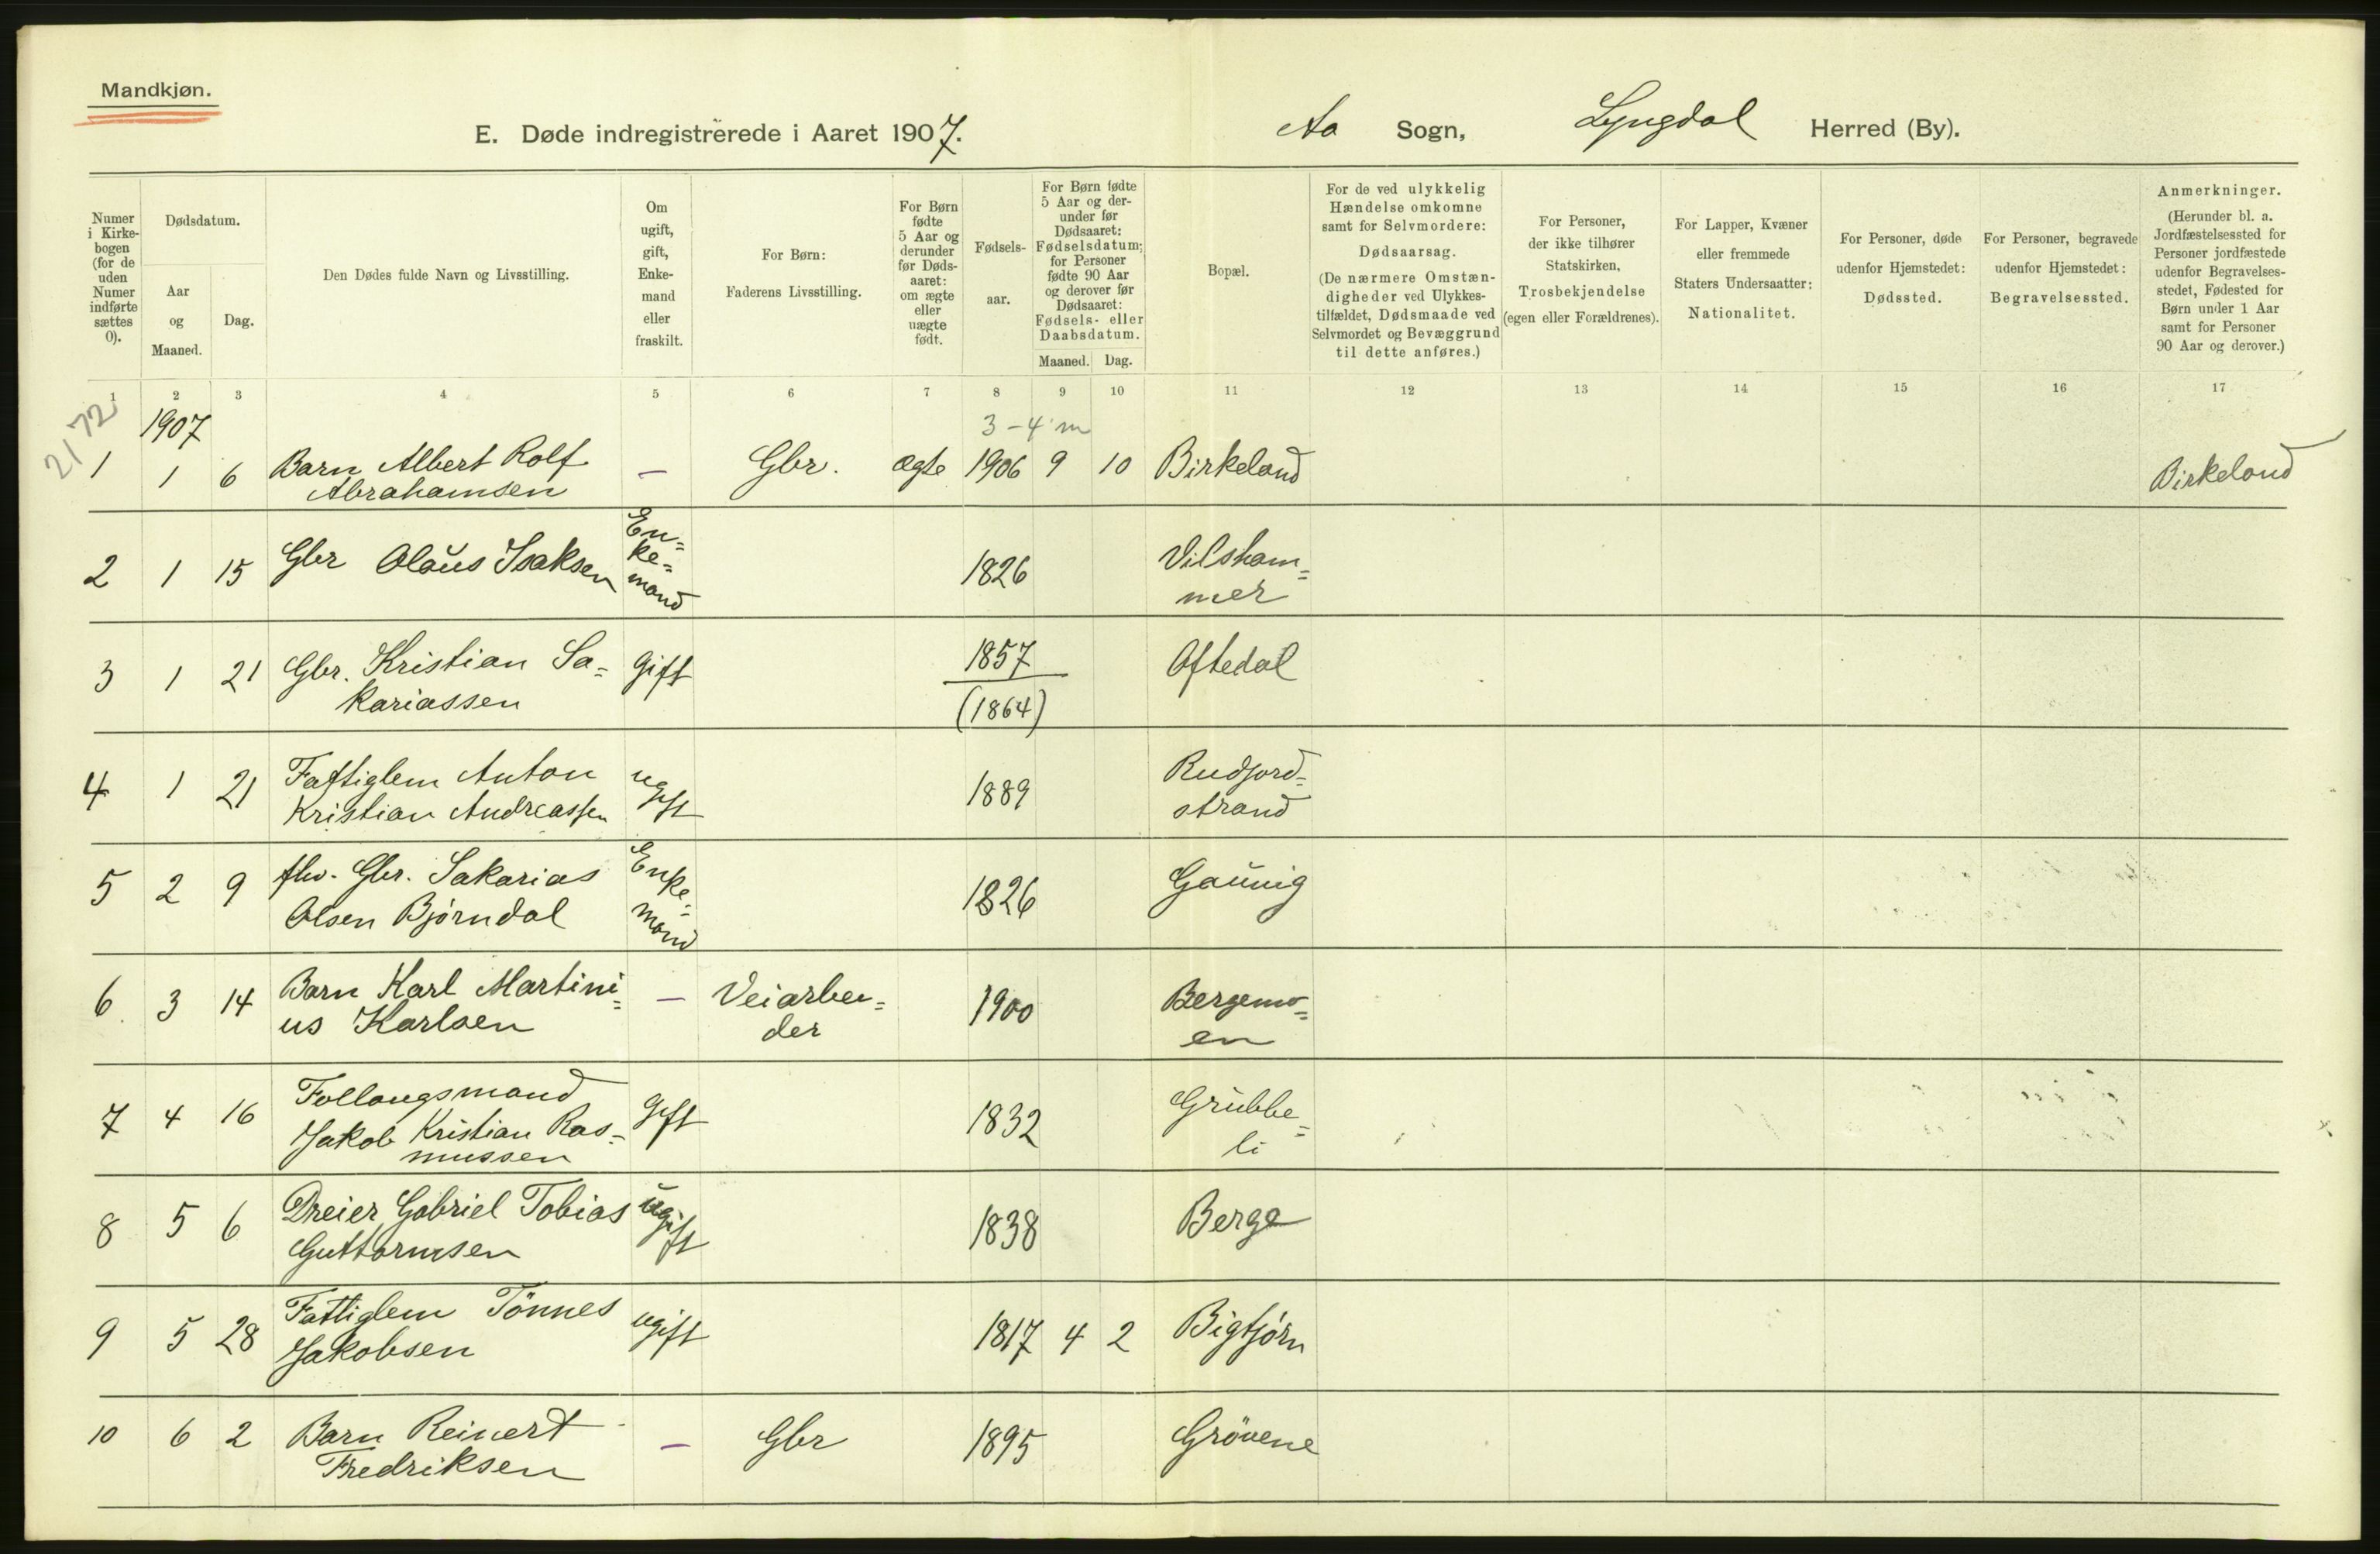 Mandkjøn.
E. Døde indregistrerede i Aaret 1907.
Aa Sogn, Lyngdal Herred (By).
Numer i Kirkebogen (for de uden Numer indførte sættes 0).
Dødsdatum.
Aar og Maaned.
Dag.
Den Dødes fulde Navn og Livsstilling.
Om ugift, gift, Enkemand eller fraskilt.
For Børn: Faderens Livsstilling.
For Børn fødte 5 Aar og derunder før Dødsaaret: om ægte eller uægte født.
Fødselsaar.
For Børn fødte 5 Aar og derunder før Dødsaaret: Fødselsdatum; for Personer fødte 90 Aar og derover før Dødsaaret: Fødsels- eller Daabsdatum.
Maaned. Dag.
Bopæl.
For de ved ulykkelig Hændelse omkomne samt for Selvmordere: Dødsaarsag. (De nærmere Omstændigheder ved Ulykkestilfældet, Dødsmaade ved Selvmordet og Bevæggrund til dette anføres.)
For Personer, der ikke tilhører Statskirken, Trosbekjendelse (egen eller Forældrenes).
For Lapper, Kvæner eller fremmede Staters Undersaatter: Nationalitet.
For Personer, døde udenfor Hjemstedet: Dødssted.
For Personer, begravede udenfor Hjemstedet: Begravelsessted.
Anmerkninger. (Herunder bl. a. Jordfæstelsessted for Personer jordfæstede udenfor Begravelsesstedet, Fødested for Børn under 1 Aar samt for Personer 90 Aar og derover.)
1 2 3 4 5 6 7 8 9 10 11 12 13 14 15 16 17
2172
1907
3-4 m
1 1 6 Barn Albert Rolf — Gbr. ægte 1906 9 10 Birkeland Birkeland
Abrahamsen
2 1 15 Gbr Olaus Isaksen En=ke=mand 1826 Vilsham=
mer
3 1 21 Gbr. Kristian Sa= gift 1857 Oftedal
kariassen (1864)
4 1 21 Fattiglem Anton ugift 1889 Rudjord=
Kristian Andreassen strand
5 2 9 fhv. Gbr. Sakarias Enke=mand 1826 Gaunig
Olsen Bjørndal
6 3 14 Barn Karl Martini= — Veiarbei= 1900 Bergemo=
us Karlsen der en
7 4 16 Follaugsmand gift 1832 Grubbe=
Jakob Kristian Ras= li
mussen
8 5 6 Dreier Gabriel Tobias ugift 1838 Berge
Guttormsen
9 5 28 Fattiglem Tönnes ugift 1817 4 2 Bigtjørn
Jakobsen
10 6 2 Barn Reinert — Gbr 1895 Grövene
Fredriksen